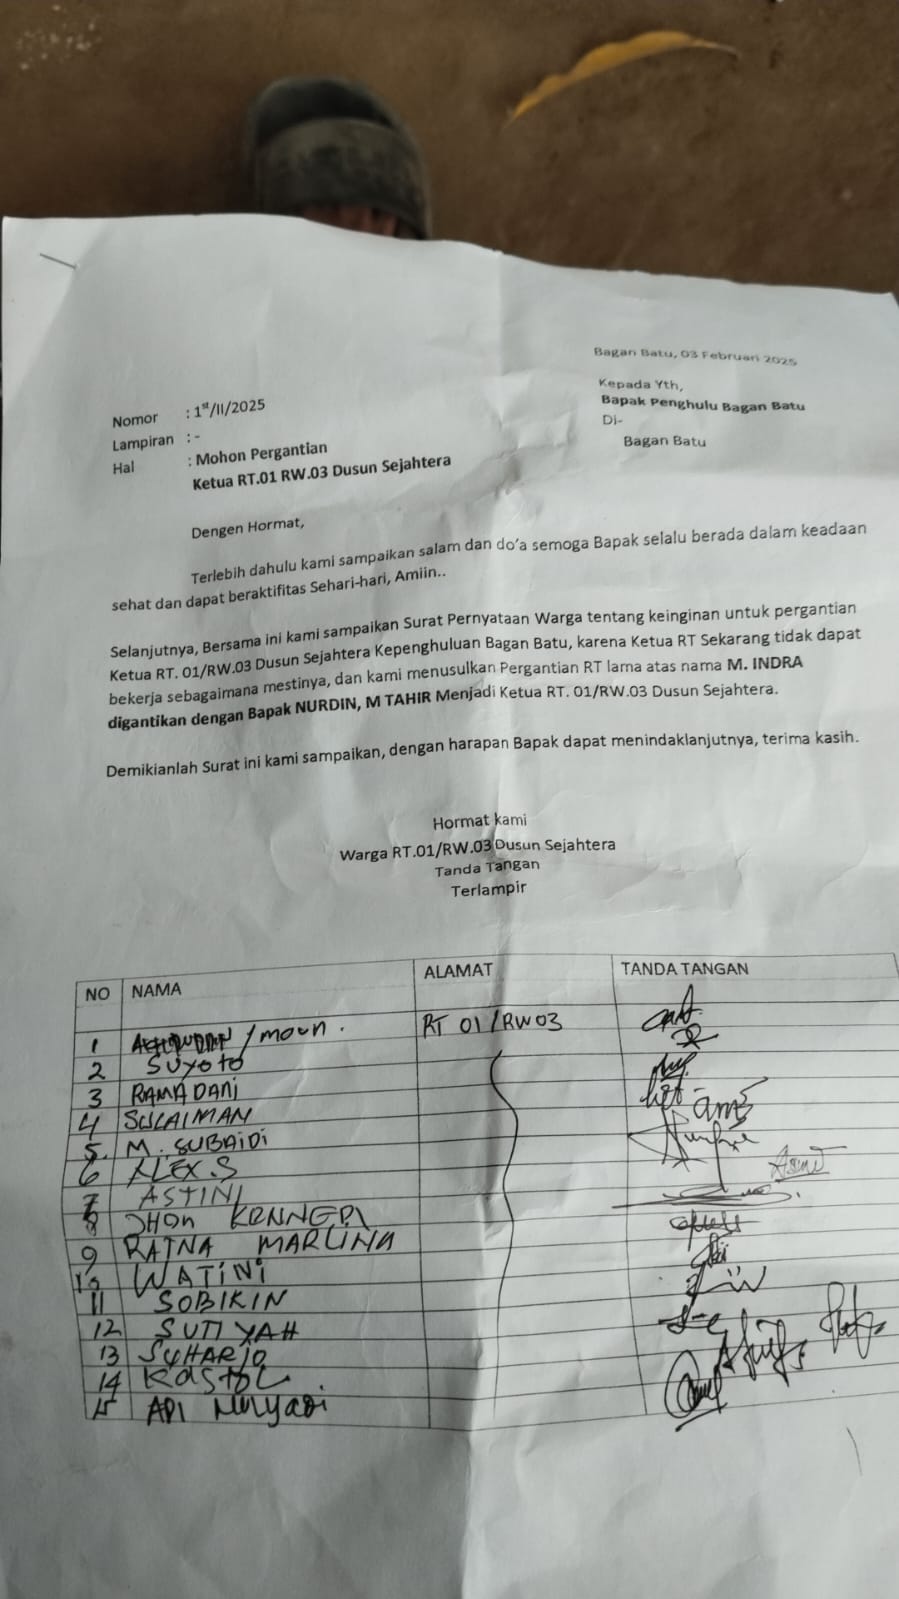 Bagan Batu, 03 Februari 2025
Kepada Yth,
Bapak Penghulu Bagan Batu
Di-
Bagan Batu
Nomor : 1st/II/2025
Lampiran : -
Hal : Mohon Pergantian
Ketua RT.01 RW.03 Dusun Sejahtera
Dengen Hormat,
Terlebih dahulu kami sampaikan salam dan do'a semoga Bapak selalu berada dalam keadaan
sehat dan dapat beraktifitas Sehari-hari, Amiin..
Selanjutnya, Bersama ini kami sampaikan Surat Pernyataan Warga tentang keinginan untuk pergantian
Ketua RT. 01/RW.03 Dusun Sejahtera Kepenghuluan Bagan Batu, karena Ketua RT Sekarang tidak dapat
bekerja sebagaimana mestinya, dan kami menusulkan Pergantian RT lama atas nama M. INDRA
digantikan dengan Bapak NURDIN, M TAHIR Menjadi Ketua RT. 01/RW.03 Dusun Sejahtera.
Demikianlah Surat ini kami sampaikan, dengan harapan Bapak dapat menindaklanjutnya, terima kasih.
Hormat kami
Warga RT.01/RW.03 Dusun Sejahtera
Tanda Tangan
Terlampir
NO NAMA ALAMAT TANDA TANGAN
1 / moon. RT 01/RW03
2 SUYOTO
3 RAMADANI
4 SULAIMAN
5. M. SUBAIDI
6 ALEX.S
7 ASTINI
8 JHON KENNEDI
9 RATNA MARLINA
10 WATINI
11 SOBIKIN
12 SUTIYAH
13 SUHARJO
14
15 ADI Mulyadi